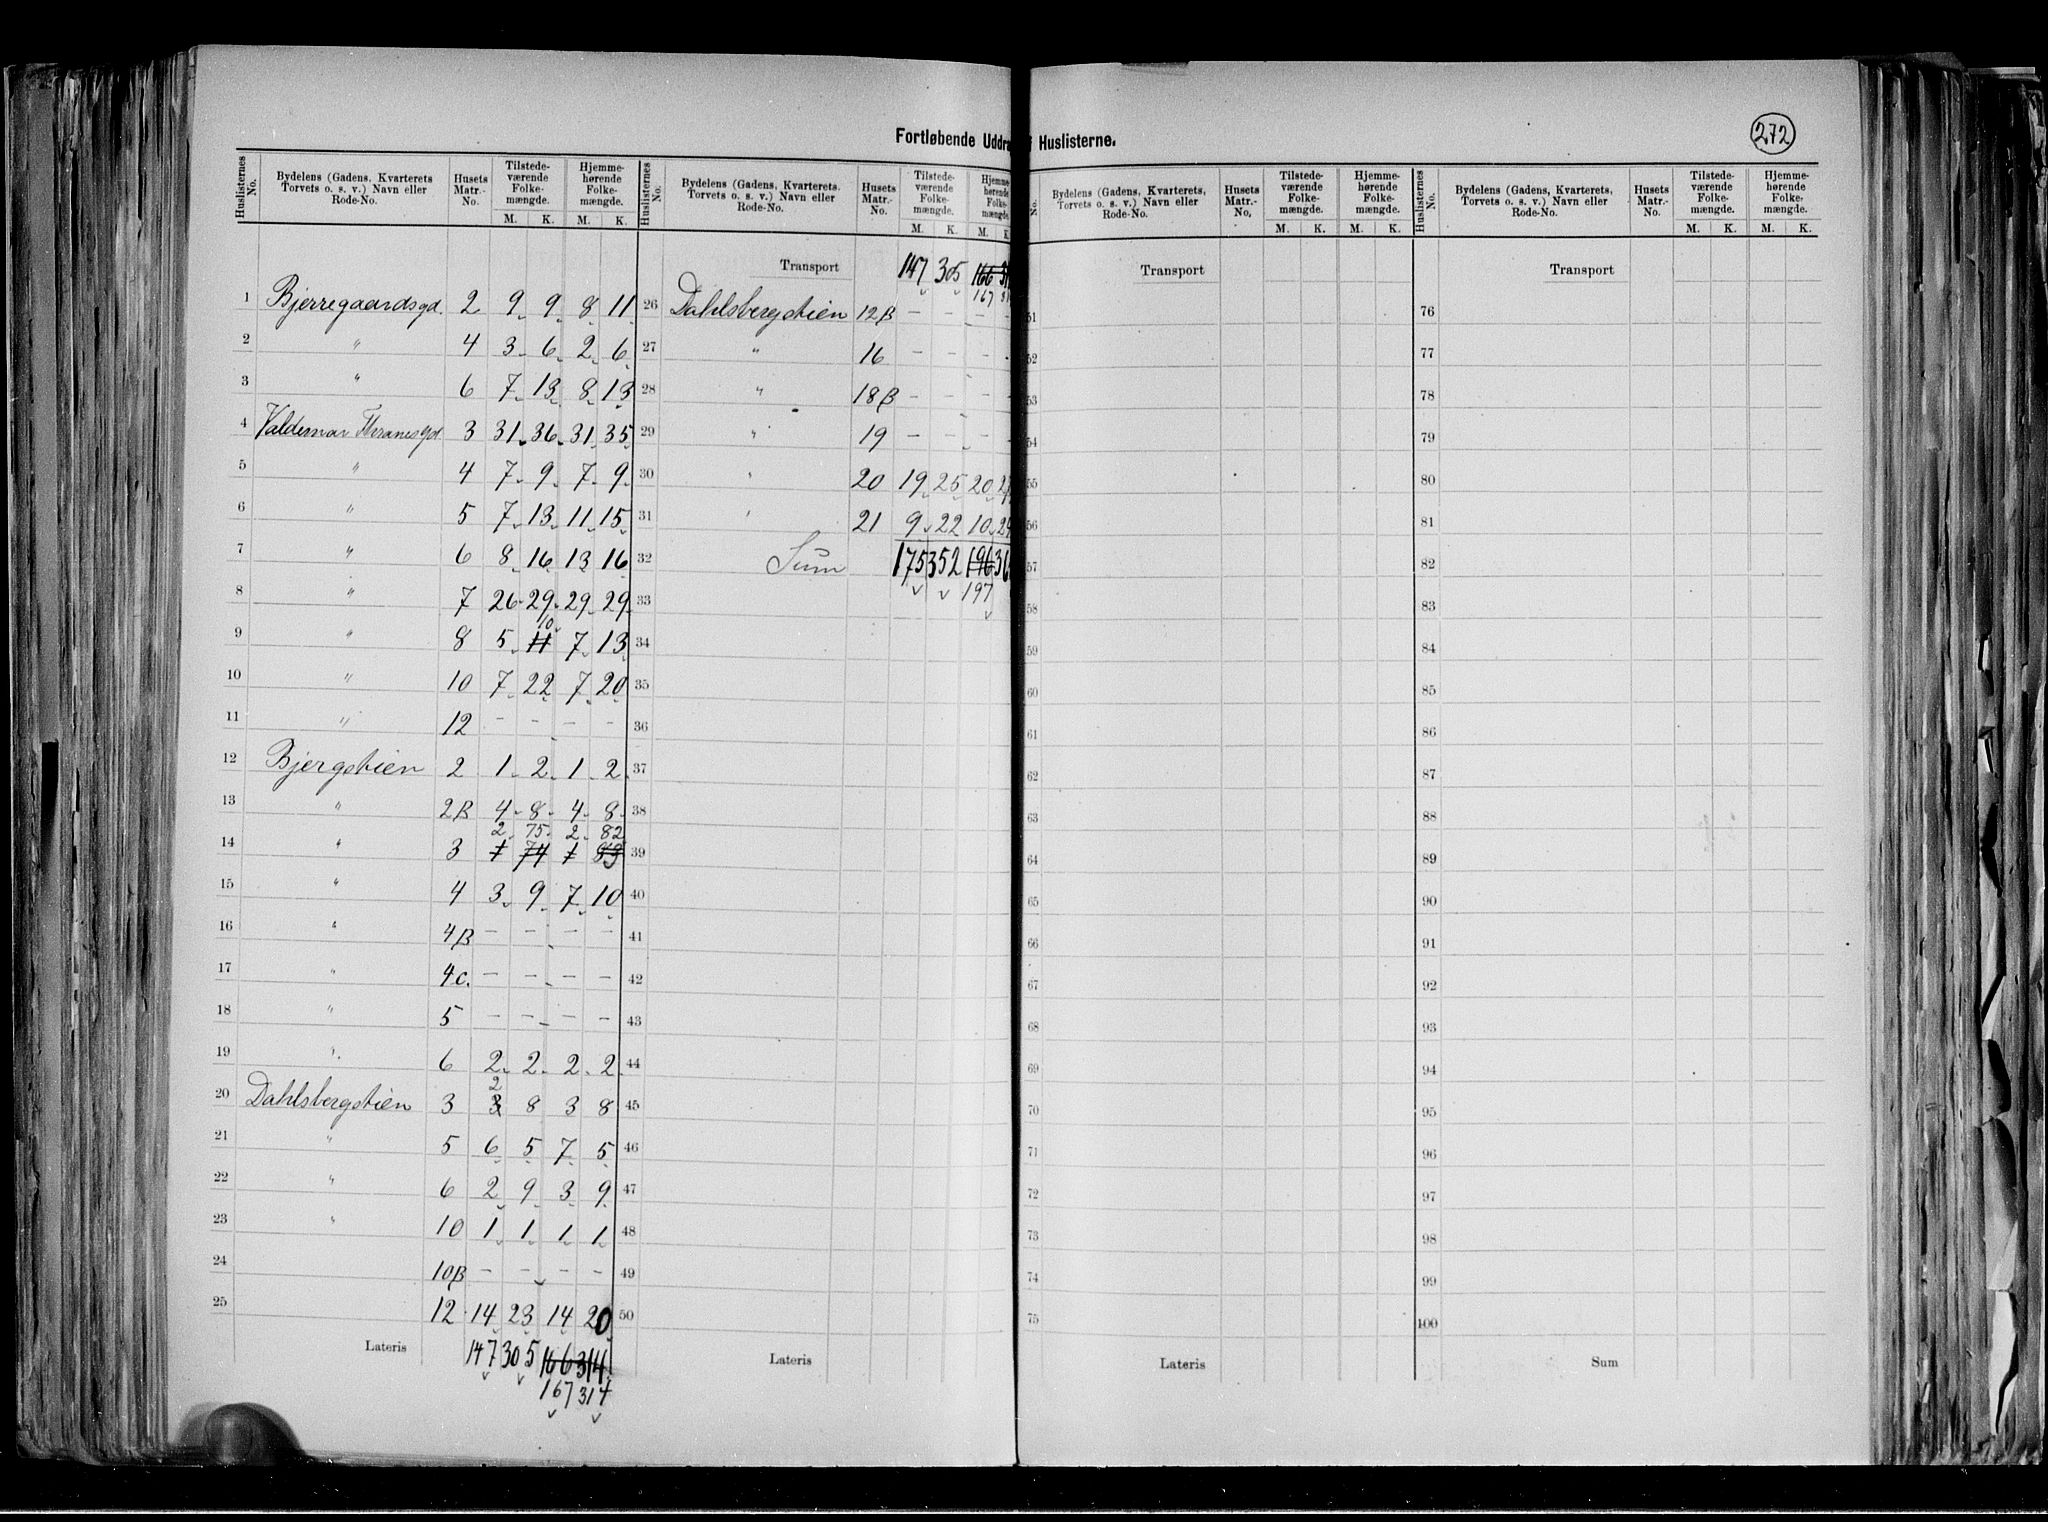 Fortløbende Uddra
f Huslisterne.
272
Huslisternes No.
Bydelens (Gadens, Kvarterets Torvets o. s. v.) Navn eller Rode-No.
Husets Matr.-No.
Tilstede-værende Folke-mængde.
Hjemme-hørende Folke-mængde.
M. K. M. K.
1 Bjerregaardsgd. 2 9 9 8 11
2 " 4 3 6 2 6
3 " 6 7 13 8 13
4 Valdemar Thranesgd. 3 31 36 31 35
5 " 4 7 9 7 9
6 " 5 7 13 11 15
7 " 6 8 16 13 16
8 " 7 26 29 29 29
10
9 " 8 5 11 7 13
10 " 10 7 22 7 20
11 " 12 – – – –
12 Bjergstien 2 1 2 1 2
13 " 2B 4 8 4 8
2 75 2 82
14 " 3 1 74 1 83
15 " 4 3 9 7 10
16 " 4B – – – –
17 " 4c. – – – –
18 " 5 – – – –
19 " 6 2 2 2 2
2
20 Dahlsbergstien 3 3 8 3 8
21 " 5 6 5 7 5
22 " 6 2 9 3 9
23 " 10 1 1 1 1
24 10B – – – –
25 12 14 23 14 20
Lateris 147 305 166 314
167 314
Huslisternes No.
Bydelens (Gadens, Kvarterets, Torvets o. s. v.) Navn eller Rode-No.
Husets Matr.-No.
Tilstede-værende Folke-mængde.
Hjemme-hørende Folke-mængde.
M. K. M. K
Transport 147 305 166
167
26 Dahlsbergstien 12B – – – –
27 " 16 – – – –
28 " 18B – – – –
29 " 19 – – – –
30 " 20 19 25 20
31 " 21 9 22 10
32 Sum 175 352 196
197
33
34
35
36
37
38
39
40
41
42
43
44
45
46
47
48
49
50
Lateris
No.
Bydelens (Gadens, Kvarterets, Torvets o. s. v.) Navn eller Rode-No.
Husets Matr.-No,
Tilstede-værende Folke-mængde.
Hjemme-hørende Folke-mængde.
M. K. M. K.
Transport
51
52
53
54
55
56
57
58
59
60
61
62
63
64
65
66
67
68
69
70
71
72
73
74
75
Lateris
Huslisternes No.
Bydelens (Gadens, Kvarterets, Torvets o. s. v.) Navn eller Rode-No.
Husets Matr.-No.
Tilstede-værende Folke-mængde.
Hjemme-hørende Folke-mængde.
M. K. M. K.
Transport
76
77
78
79
80
81
82
83
84
85
86
87
88
89
90
91
92
93
94
95
96
97
98
99
100
Sum